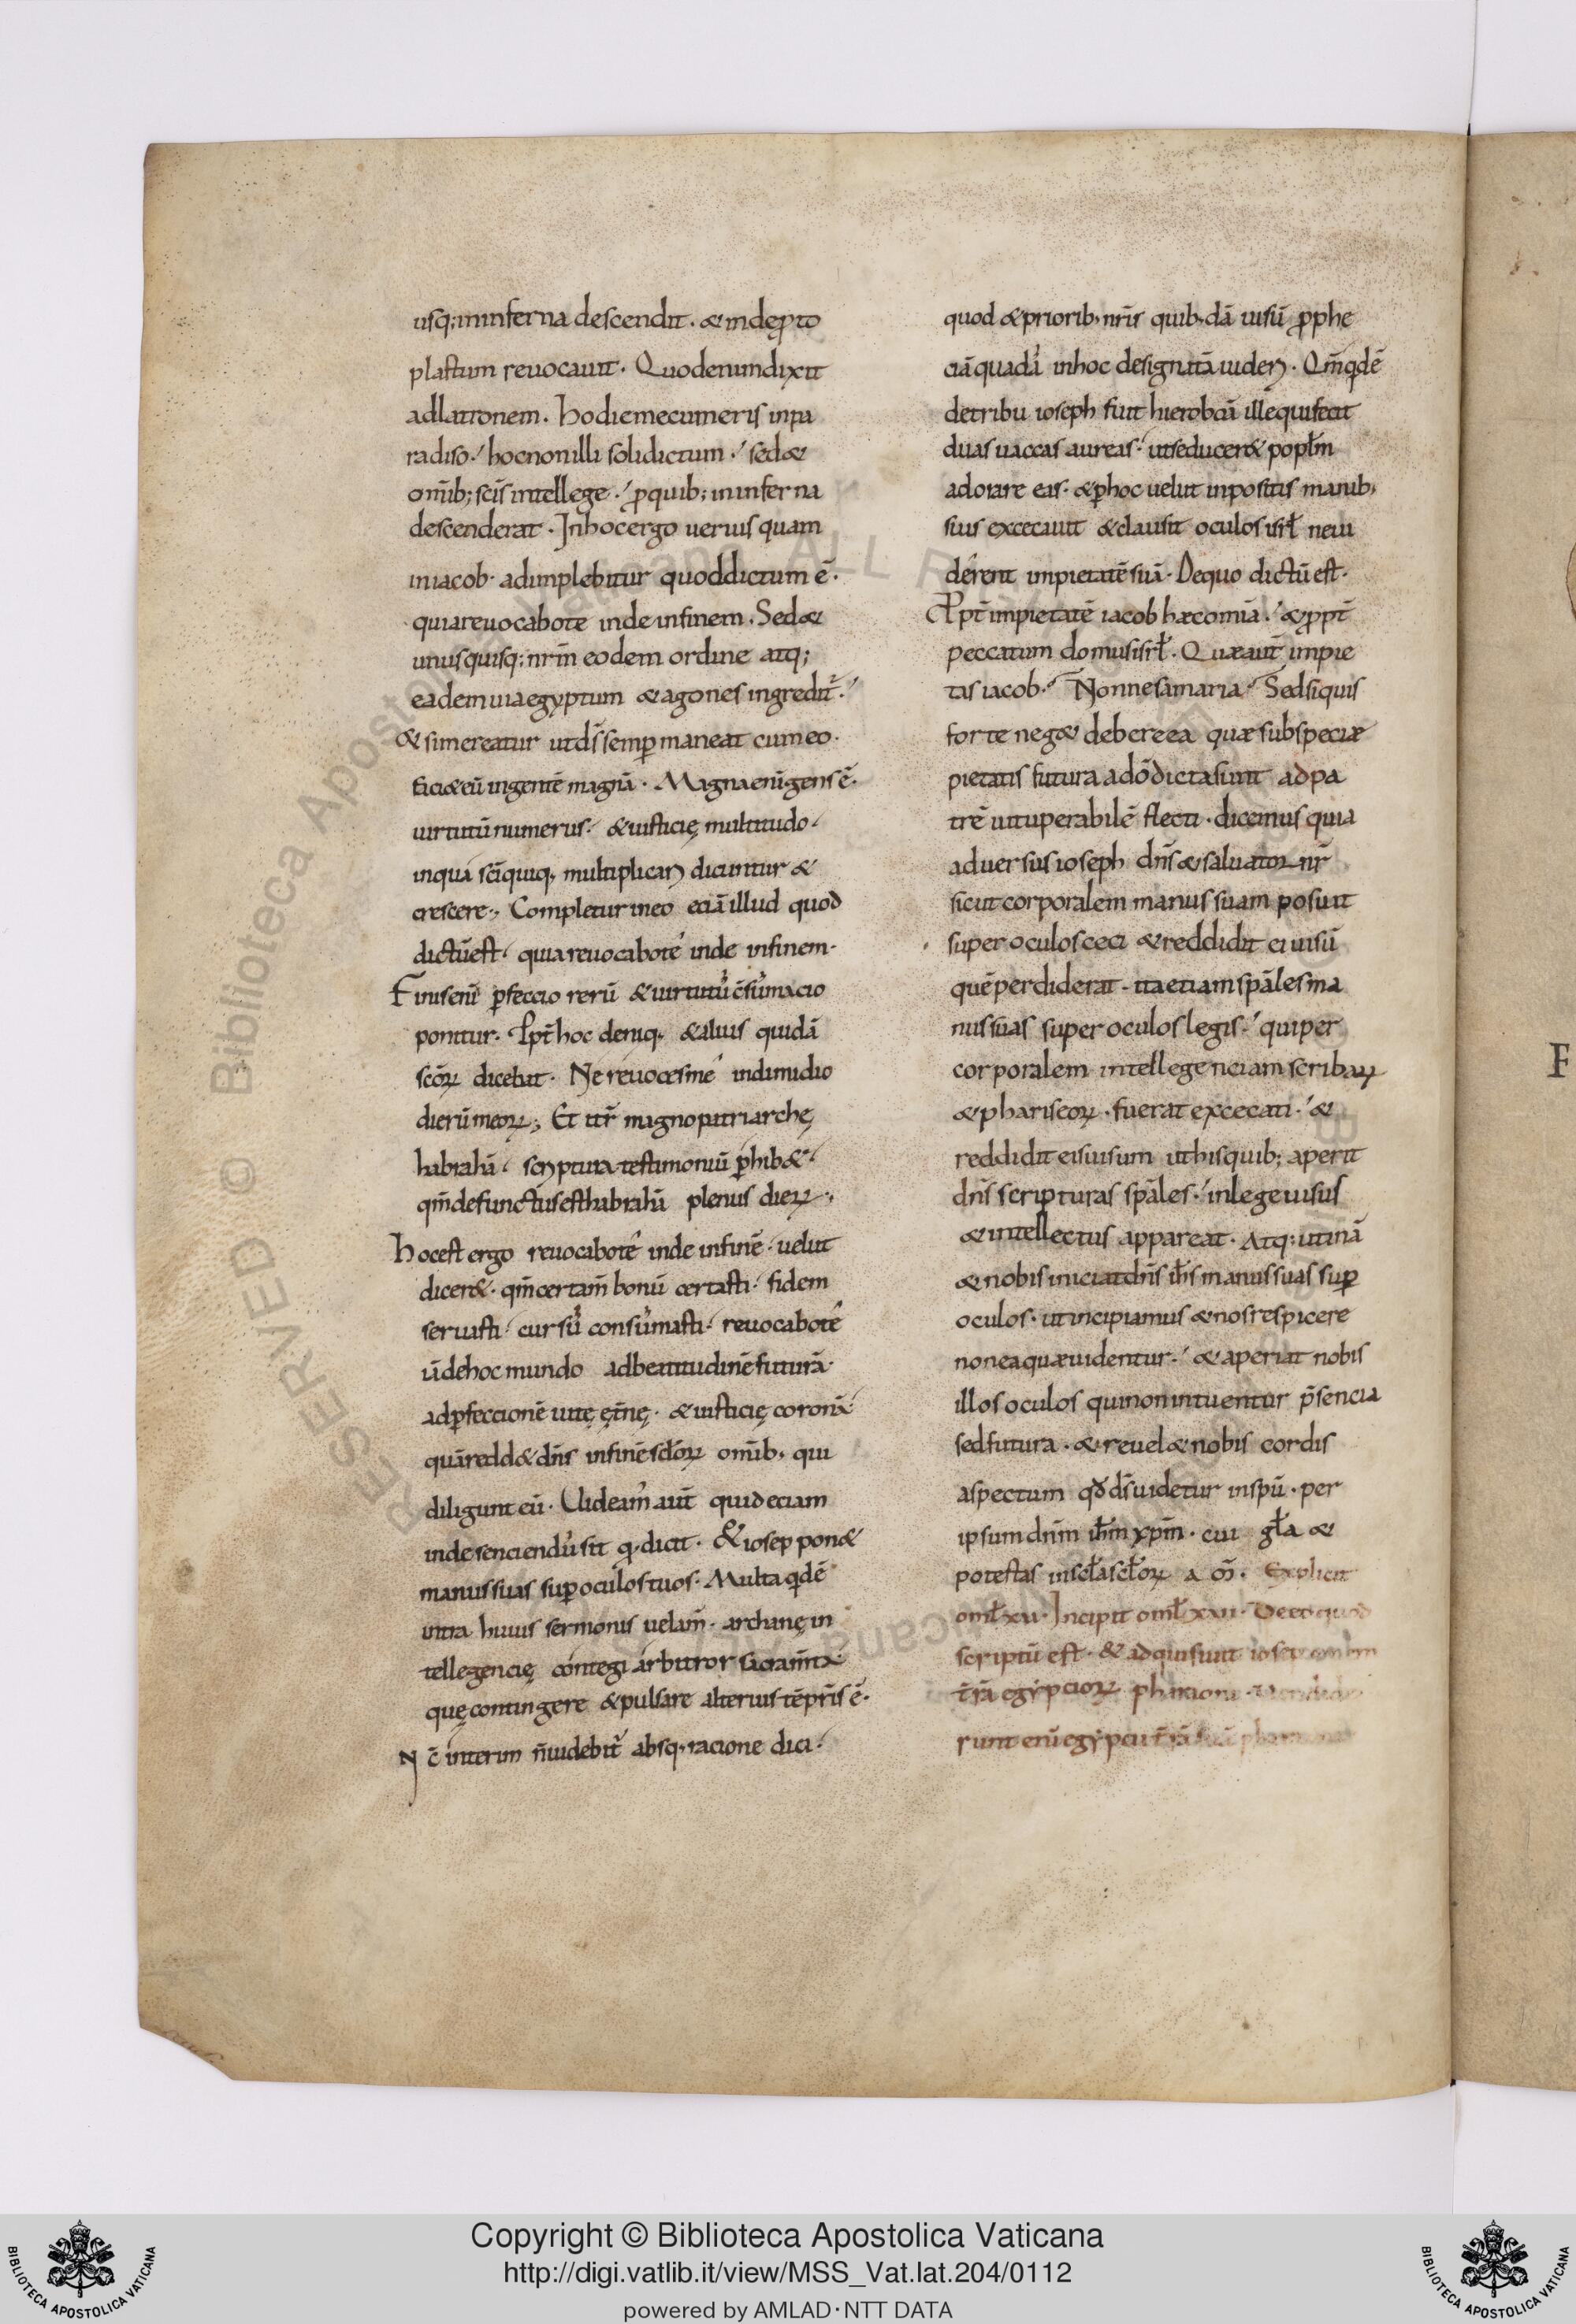 usq;ininferna descendit. &indep̱to
plastum reuocauit. Quodenimdixit
adlatronem. hodiemecumeris inpa
radiso. hocnonilli solidictum. sed&
om̄ib; sc̄is intellege. ꝓquib; ininferna
descenderat. Inhocergo uerius quam
iniacob. adimplebitur quoddictum ē.
quiareuocabote inde infinem. Sed&
unusquisq; nrm̄ eodem ordine atq;
eadem uia egyptum &agones ingredit̄.
&simereatur utds̄ semꝑ maneat cumeo.
faci&eū ingentē magnā. Magna enīgens ē.
uirtutū numerus. &iusticię multitudo.
inqua sc̄iquiq, multiplicari dicuntur &
crescere. Completur ineo eciā illud quod
dictūest. quiareuocabote inde infinem.
Finisenī ꝑfeccio rerū &uirtutū c̄sūmacio
ponitur. Ꝓpt̄ hoc deniq, &alius quidā
sc̄oꝝ dicebat. Ne reuocesme indimidio
dierū meoꝝ; Et it̄r magnopatriarchę
habrahā. scriptura testimoniū ꝑhib&.
qm̄defunctusesthabrahā plenus dieꝝ.
Hocest ergo reuocabote inde infinē. uelut
dicer&. qm̄certam̄ bonū certasti. fidem
seruasti. cursū consūmasti. reuocabote
iādehoc mundo adbeatitudinē futurā.
adꝑfeccionē uitę ęt̄nę. &iusticię coronā
quāredd&dn̄s infinē scl̄oꝝ om̄ib, qui
diligunt eū. Uideam̄ aut̄ quid eciam
inde senciendūsit q, dicit. & iosep pon&
manus suas suꝑoculos tuos. Multa qdē
intra huius sermonis uelam̄. archanę in
tellegencię contegi arbitror sacram̄ta
quę contingere &pulsare alterius tēpris ē.
Nc̄ interim n̄uidebit̄ absq, racione dici.
quod &priorib, nr̄is quib,dā uisū ꝓphe
ciāquadā inhoc designatā uideri. Qm̄qdē
detribu ioseph fuit hieroboā illequifecit
duas uaccas aureas. utseducer& popl̄m
adorare eas. &ꝑhoc uelut inpositis manib,
suis excecauit &clausit oculos isrł neui
derent impietatē suā. Dequo dictū est.
Ꝓpt̄ impietatē iacob hæcomiā. &ꝓpt̄
peccatum domusisrł. Quæaut̄ impie
tas iacob. Nonnesamaria. Sedsiquis
forte neg& debereea quæ subspeciæ
pietatis futura adō dictasunt adpa
trē uituperabilē flecti. dicemus quia
aduersus ioseph dn̄s &saluator nr̄
sicut corporalem manus suam posuit
super oculos ceci &reddidit ei uisū
quē perdiderat. ita etiam spāles ma
nus suas super oculos legis. quiper
corporalem intellegenciam scribaꝝ
&phariseoꝝ. fuerat excecati. &
reddidit eisuisum uthisquib; aperit
dn̄s scripturas spāles. inlege uisus
&intellectus appareat. Atq; utinā
&nobis iniciatdn̄s ih̄s manus suas suꝑ
oculos. utincipiamus &nos respicere
noneaquæuidentur. &aperiat nobis
illos oculos quinonintuentur p̄sencia
sedfutura. &reuel&nobis cordis
aspectum qđ ds̄uidetur inspū. per
ipsum dnm̄ ih̄m xp̄m. cui gl̄a &
potestas inscl̄ascl̄oꝝ a m̄. Explicit
oml̄ xu. Incipit oml̄ xui. Deeo quod
scriptū est. & adquisiuit iosep omēm
t̄rā egypcioꝝ pharaoni. uendide
runt enī egypcii t̄rā suā
F
Copyright © Biblioteca Apostolica Vaticana
http://digi.vatlib.it/view/MSS_Vat.lat.204/0112
powered by AMLAD·NTT DATA